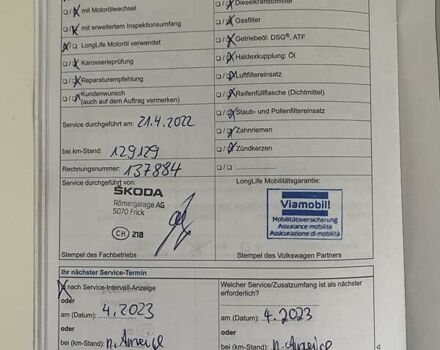 mit Motorölwechsel
mit erweitertem Inspektionsumfang
LongLife Motoröl verwendet
Karosserieprüfung
Reparaturempfehlung
Kundenwunsch
(auch auf dem Auftrag vermerken)
Service durchgeführt am: 21.4.2022
bei km-Stand: 129129
Rechnungsnummer: 137884
Service durchgeführt von:
ŠKODA
Römergarage AG
5070 Frick
CH 218
Stempel des Fachbetriebs
Dieselkraftstofffilter
Gasfilter
Getriebeöl: DSG®, ATF
Haldexkupplung: Öl
Luftfiltereinsatz
Reifenfüllflasche (Dichtmittel)
Staub- und Pollenfiltereinsatz
Zahnriemen
Zündkerzen
LongLife Mobilitätsgarantie:
Viamobil!
Mobilitätsversicherung
Assurance mobilité
Assicurazione di mobilità
Stempel des Volkswagen Partners
Ihr nächster Service-Termin
nach Service-Intervall-Anzeige
oder
am (Datum): 4.2023
oder
bei (km-Stand): n. Anzeige
Welcher Service/Zusatzumfang ist als nächster
erforderlich?
am (Datum): 4.2023
oder
bei (km-Stand): n. Anzeige